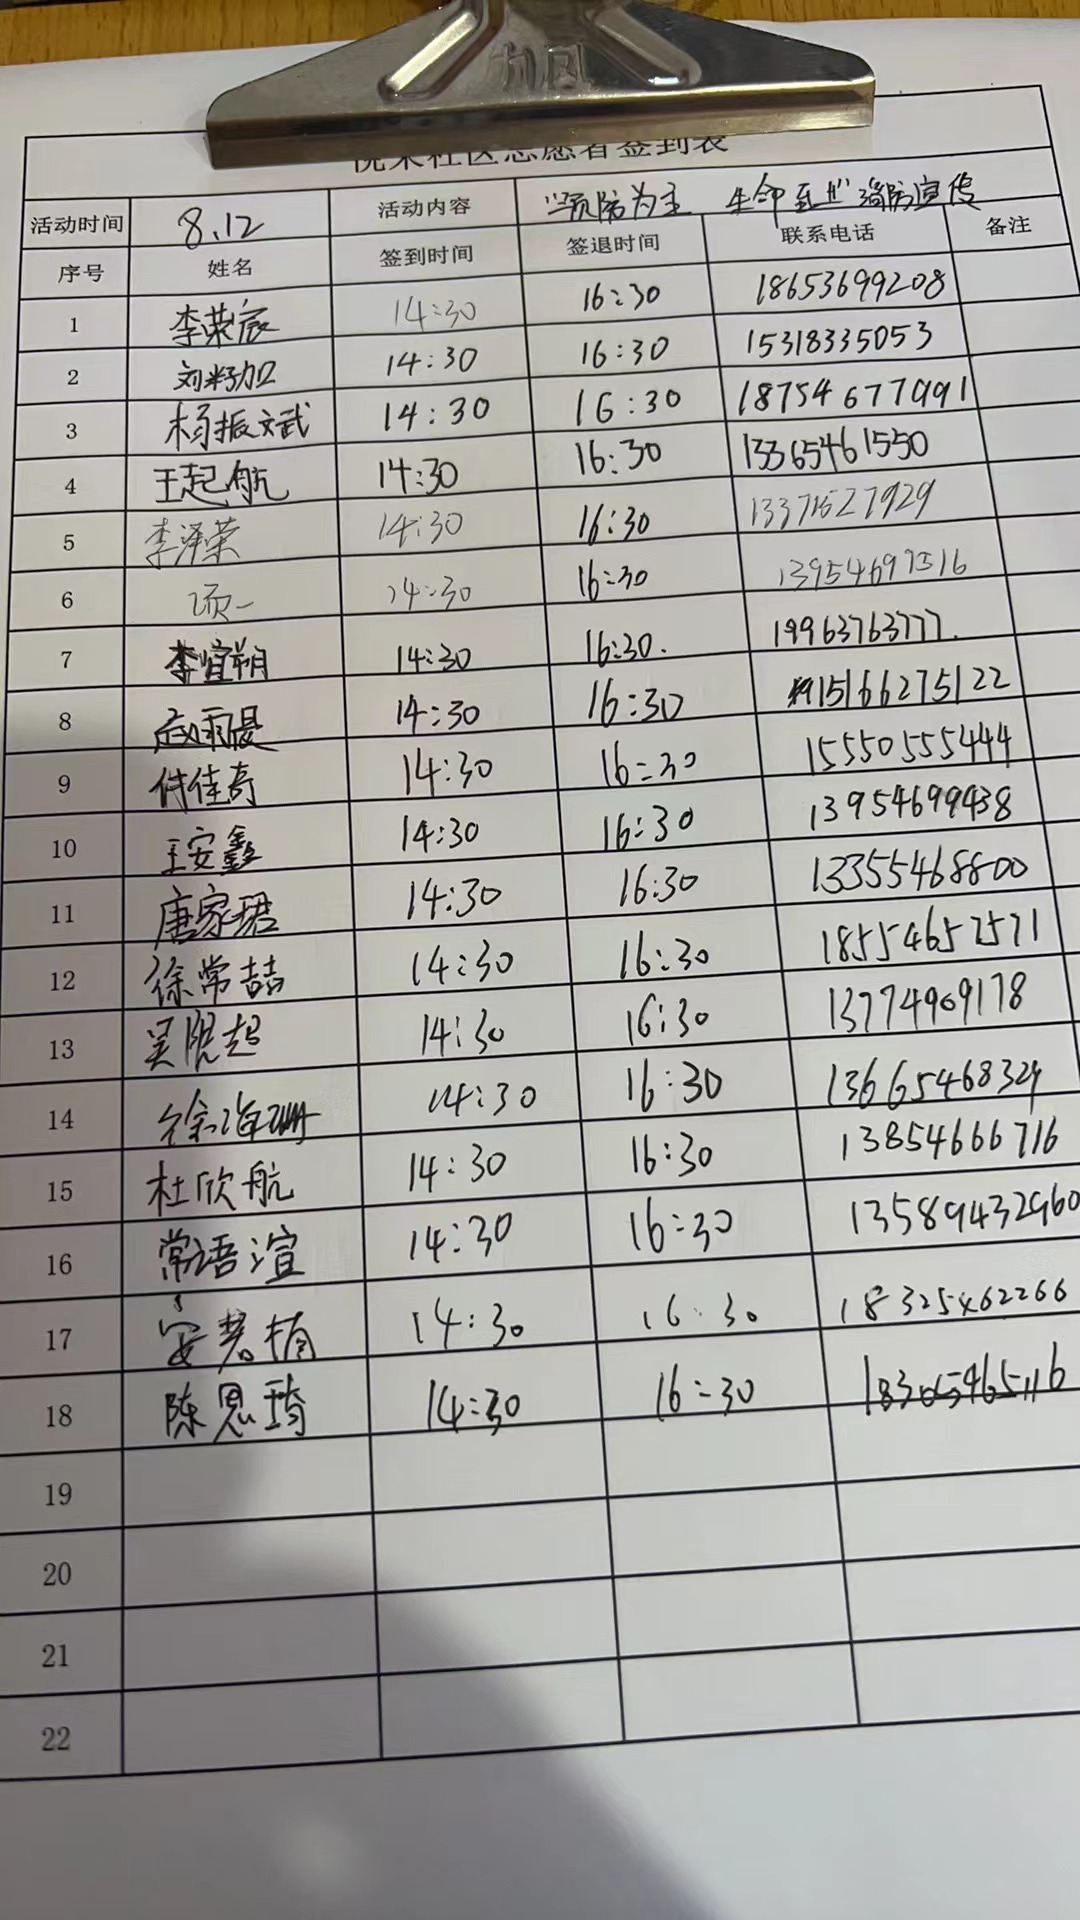 力凡
悦来社区志愿者签到表
活动时间 8.12 活动内容 “预防为主 生命至上”消防宣传
序号 姓名 签到时间 签退时间 联系电话 备注
1 李荣宸 14:30 16:30 18653699208
2 刘籽加 14:30 16:30 15318335053
3 杨振文武 14:30 16:30 18754677991
4 王起航 14:30 16:30 13365461550
5 李泽荣 14:30 16:30 13371527929
6 项一 14:30 16:30 13954697516
7 李宜朔 14:30 16:30. 19963763777.
8 14:30 16:30 15166275122
9 付佳奇 14:30 16:30 15550555444
10 王安鑫 14:30 16:30 13954699438
11 唐家珺 14:30 16:30 13355468800
12 徐常喆 14:30 16:30 18554652571
13 吴限超 14:30 16:30 13774909178
14 徐海珊 14:30 16:30 13665468329
15 杜欣航 14:30 16:30 13854666716
16 常语渲 14:30 16:30 135894432960
17 14:30 16:30 18325462266
18 陈恩琦 14:30 16:30 18365465116
19
20
21
22